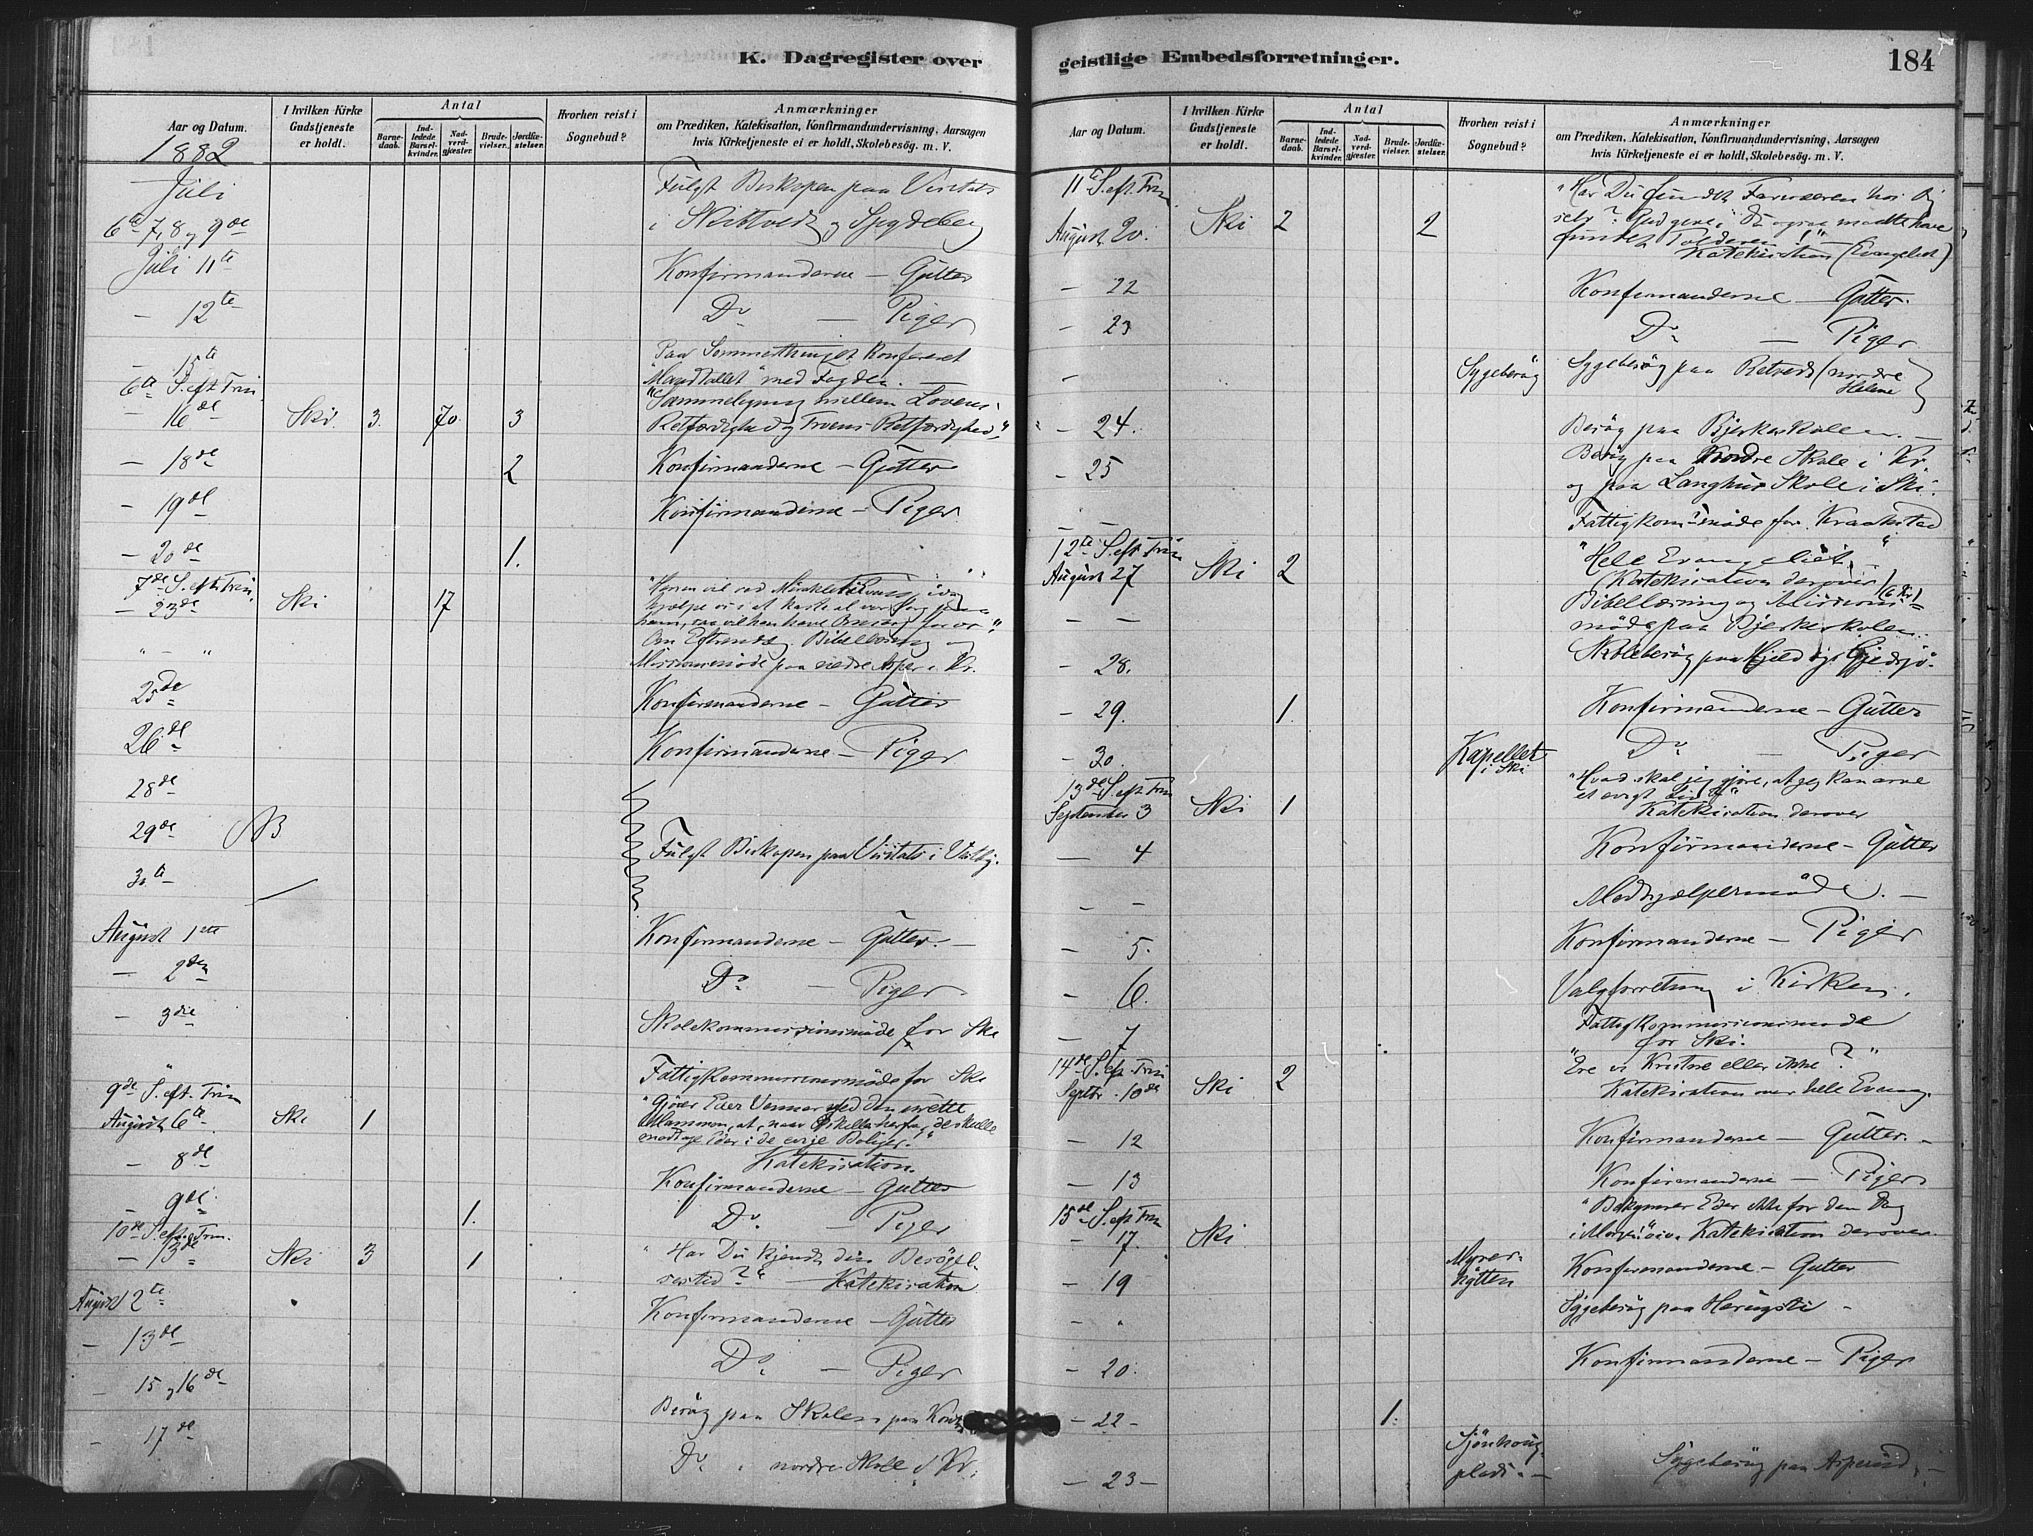 K. Dagregister over
Aar og Datum.
I hvilken Kirke
Gudstjeneste
er holdt.
Antal
Barne-
daab.
Ind-
ledede
Barsel-
kvinder.
Nad-
verd-
gjæster.
Brude-
vielser.
Jordfæ-
stelser.
Hvorhen reist i
Sognebud?
Anmærkninger
om Prædiken, Katekisation, Konfirmandundervisning, Aarsagen
hvis Kirketjeneste ei er holdt, Skolebesøg. m. V.
1882
Juli
6te 7, 8 og 9de
Fulgt Biskopen paa Visitats
i Skibtvedt og Spydeberg
Juli 11te
Konfirmanderne - Gutter
- 12te
Do - Piger
- 15te
Paa Sommerthinget konfereret
"Mandtallet" med Fogden. -
6te S. eft. Trin.
- 16de Ski. 3. 70. 3
"Sammenligning mellem Lovens
Retfærdighed og Troens Retfærdighed."
- 18de 2
Konfirmanderne - Gutter
- 19de
Konfirmanderne - Piger.
- 20de 1.
7de S. eft. Trin.
- 23de Ski 17
hjælpe os i at kaste al vor Sorg paa
ham, saa vil han have Omsorg for os".
Om Eftermd. Bibellæsning og
" - "
Missionsmøde paa nedre Asper i Kr.
25de
Konfirmanderne - Gutter
26de
Konfirmanderne - Piger
28de
29de NB
Fulgt Biskopen paa Visitats i Vestby.
30te
August 1ste
Konfirmanderne - Gutter. -
- 2den
Do - Piger
- 3die
Skolekommissionsmøde for Ski
"
Fattigkommissionsmøde for Ski
9de S. eft. Trin
August 6te Ski 1
"Gjører Eder Venner ved den urette
Mammon, at, naar I skilles herfra, de skulle
modtage Eder i de evige Boliger."
Katekisation.
- 8de
Konfirmanderne - Gutter
- 9de 1.
Do. - Piger
10de S. eft. Trin.
- 13de Ski 3 1
"Har Du kjendt din Besøgel-
sestid?" - Katekisation
August 2te
Konfirmanderne - Gutter
- 13de
Do. - Piger
- 15 og 16de
Besøg paa Skolen
- 17de
Do. nordre Skole i Kr.
geistlige Embedsforretninger.
184
Aar og Datum.
I hvilken Kirke
Gudstjeneste
er holdt.
Antal
Barne-
daab.
Ind-
ledede
Barsel-
kvinder.
Nad-
verd-
gjæster.
Brude-
vielser.
Jordfæ-
stelser.
Hvorhen reist i
Sognebud?
Anmærkninger
om Prædiken, Katekisation, Konfirmandundervisning, Aarsagen
hvis Kirketjeneste ei er holdt, Skolebesøg. m. V.
11te S. eft. Trin
August 20. Ski 2 2
"Har Du fundet Farisæeren hos Dig
selv? Gud give, Du ogsaa maatte have
fundet Tolderen!"
Katekisation (Evangeliet)
- 22
Konfirmanderne - Gutter.
- 23
Do - Piger
- Sygebesøg
Sygebesøg paa Retvedt (nordre
Helene)
" - 24.
Besøg paa Bjerkeskolen. -
- 25
Besøg paa Nordre Skole i Kr.
og paa Langhus Skole i Ski.
- -
Fattigkom.møde for Kraakstad
12te S. eft. Trin
August 27 Ski 2
"Hele Evangeliet."
(Katekisation derover)
- -
Bibellæsning og Missions-
møde paa Bjerkeskolen.
- 28.
Skolebesøg paa
- 29. 1.
Konfirmanderne - Gutter
- 30. Kapellet
i Ski
Do - Piger
13de S. eft. Trin
September 3 Ski 1
"Hvad skal jeg gjøre, at jeg kan arve
et evigt Liv?"
Katekisation derover
- 4
Konfirmanderne - Gutter
- -
Medhjælpermøde. -
- 5.
Konfirmanderne - Piger
- 6.
Valgforretning i Kirken.
- 7
Fattigkommissionsmøde
for Ski.
14de S. eft. Trin
Septbr. 10de Ski 2
"Ere vi Kristne eller ikke?"
Katekisation over hele Evang.
- 12
Konfirmanderne - Gutter. -
- 13
Konfirmanderne - Piger
15de S. eft. Trin
- 17. Ski
"Bekymrer Eder ikke for den Dag
i Morgen" Katekisation derover.
- 19 Myrer-
hytten
Konfirmanderne - Gutter
- "
Sygebesøg paa Haugsti -
- 20.
Konfirmanderne - Piger
- 22 - 1.
- 23 -
Sygebesøg paa Asperud. -